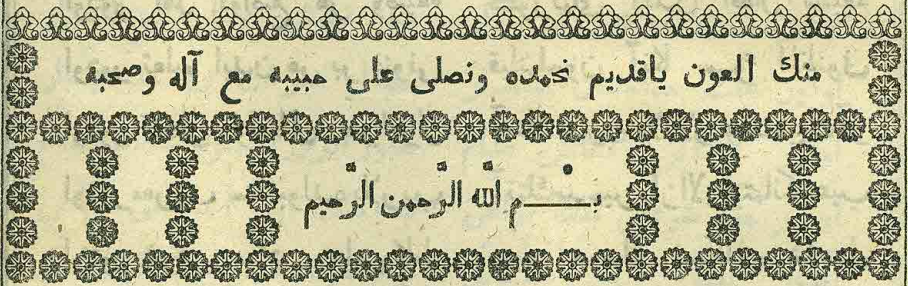 منك العون ياقديم نحمده ونصلى على حبيبه مع آله وصحبه
بْسم اللّٰه الرَّحمن الرَّحيم